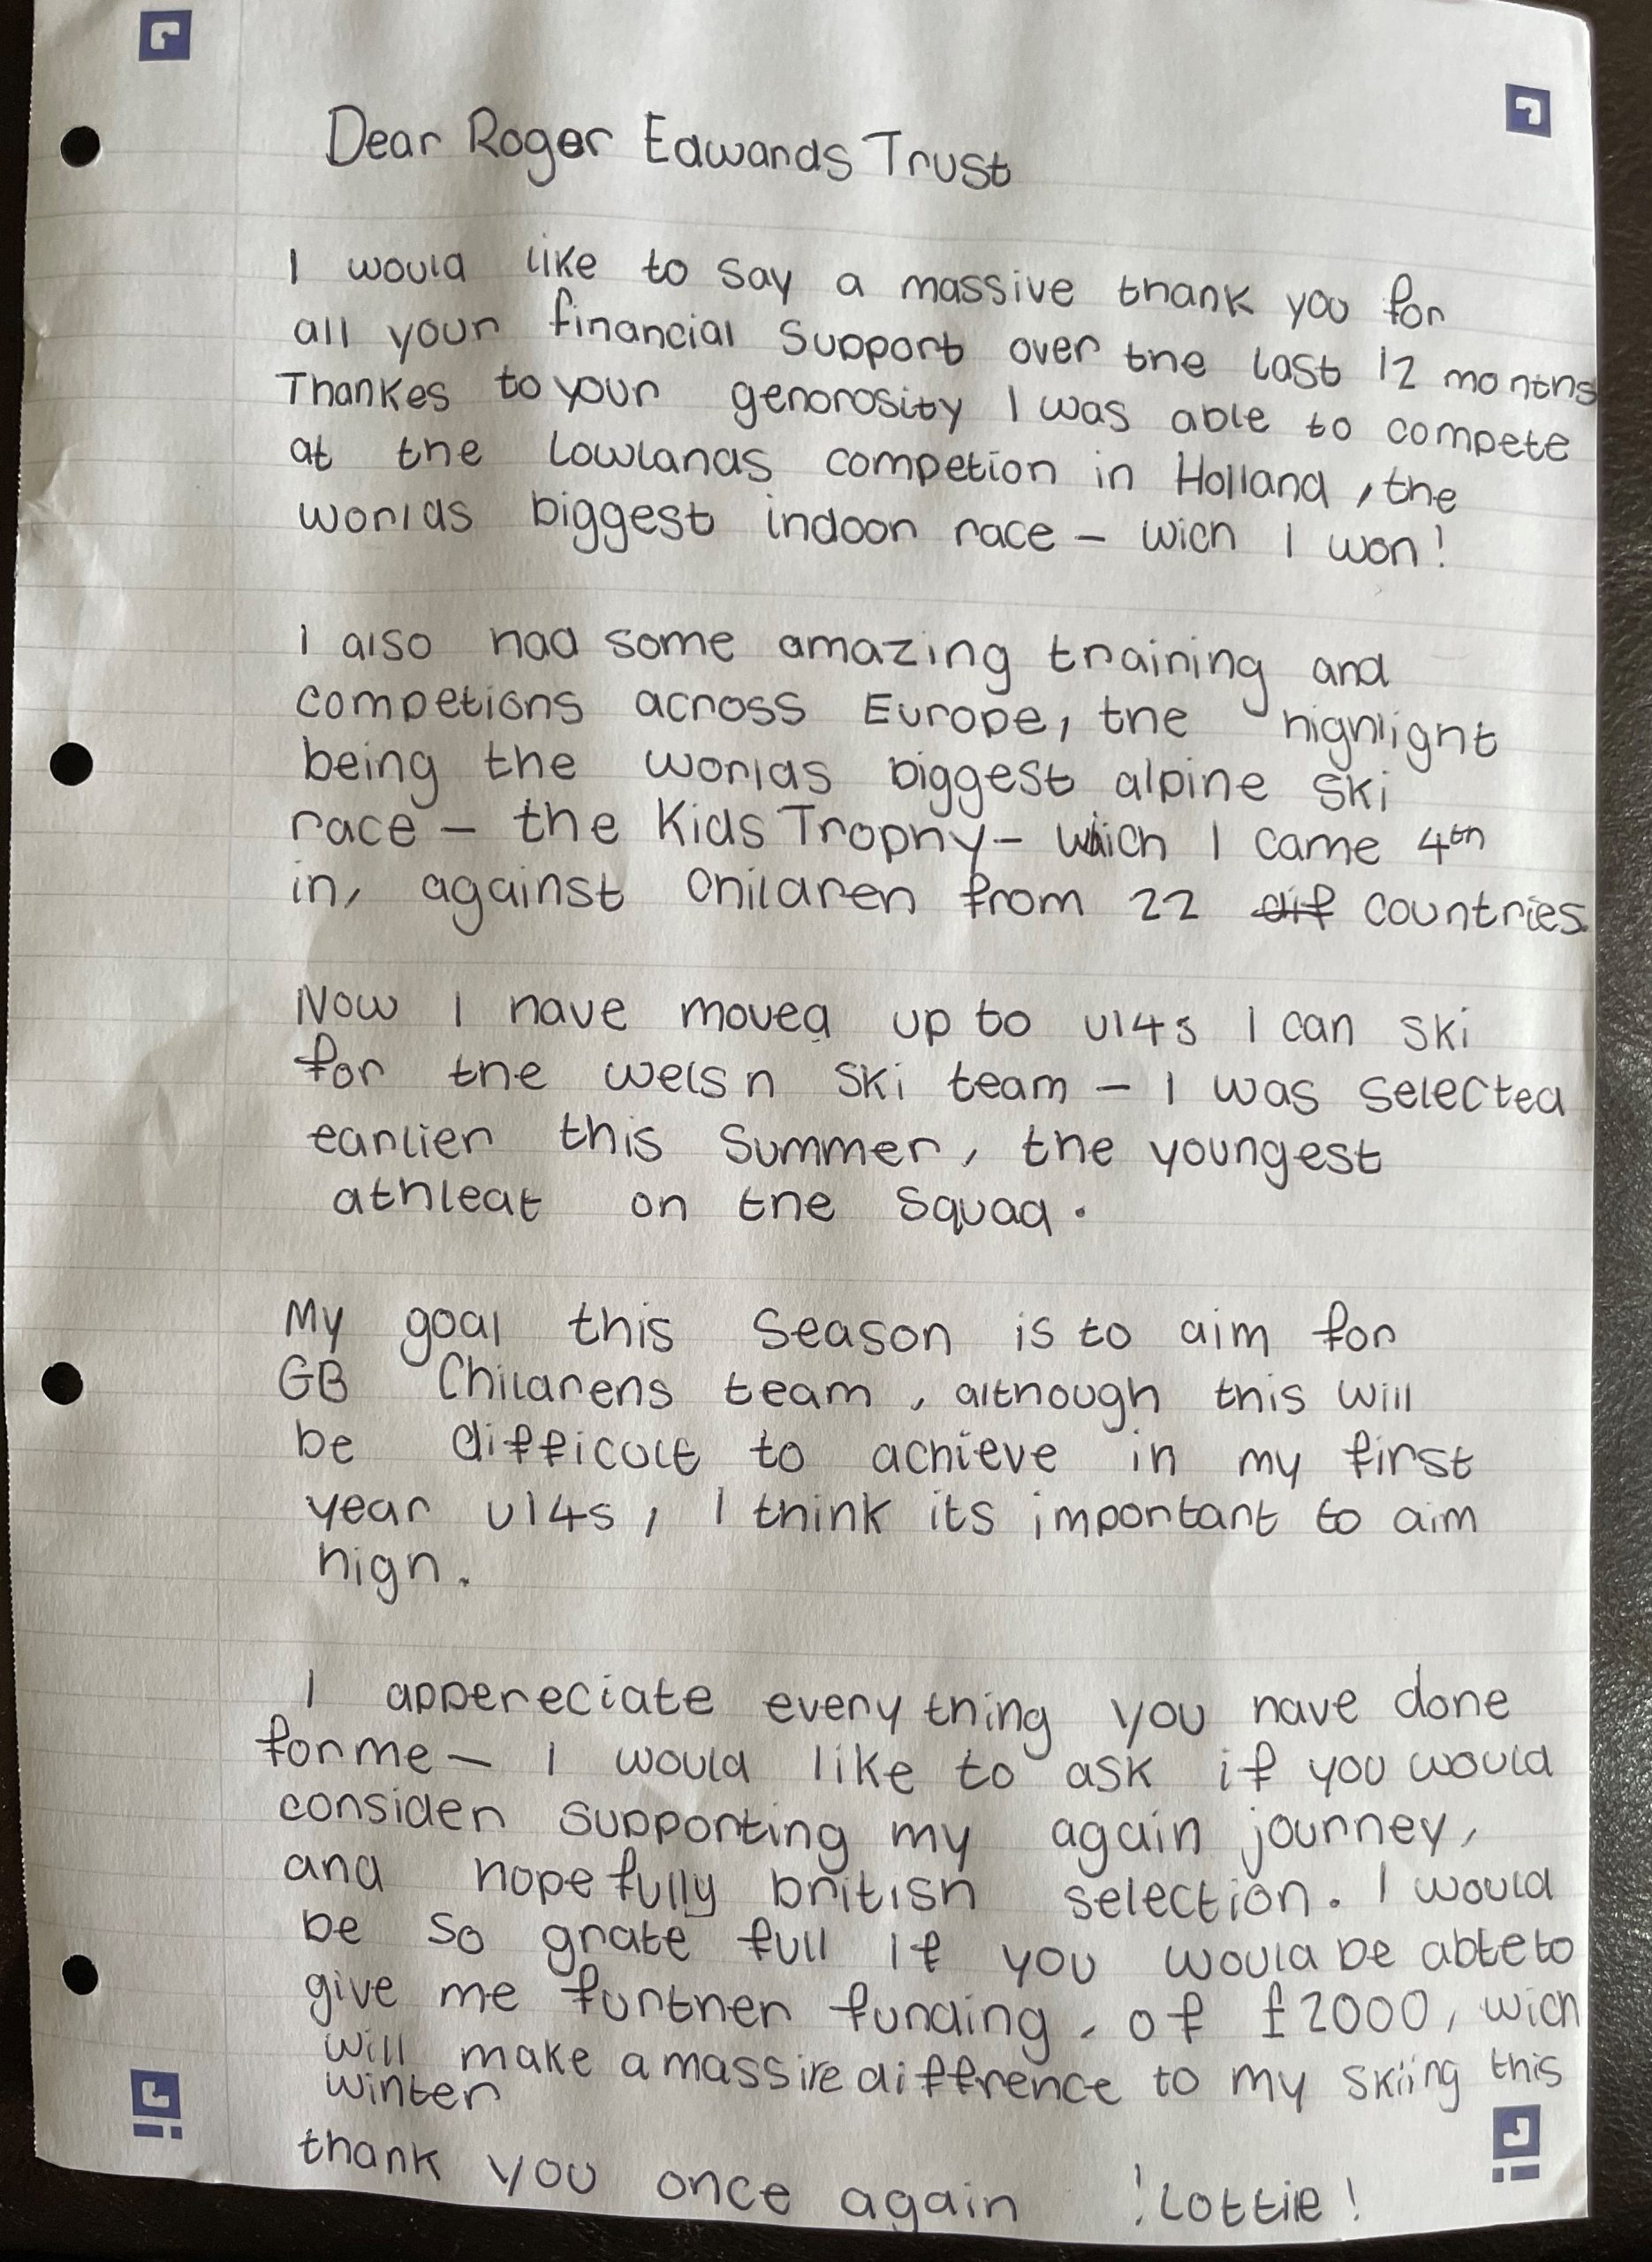 Dear Roger Edwards Trust
I would like to say a massive thank you for
all your financial support over the last 12 months
Thankes to your generosity I was able to compete
at the Lowlands competion in Holland, the
worlds biggest indoor race - wich I won!
I also had some amazing training and
competions across Europe, the highlight
being the worlds biggest alpine ski
race - the Kids Trophy - which I came 4th
in, against Children from 22 dif countries.
Now I have moved up to U14s I can ski
for the welsh ski team - I was selected
earlier this summer, the youngest
athleat on the squad.
My goal this season is to aim for
GB Childrens team, although this will
be difficult to achieve in my first
year U14s, I think its important to aim
high.
I appereciate every thing you have done
for me - I would like to ask if you would
consider supporting my again journey,
and hope fully british selection. I would
be so grate full if you would be able to
give me further funding, of £2000, wich
will make a massive diffrence to my skiing this
winter
thank you once again !Lottie!